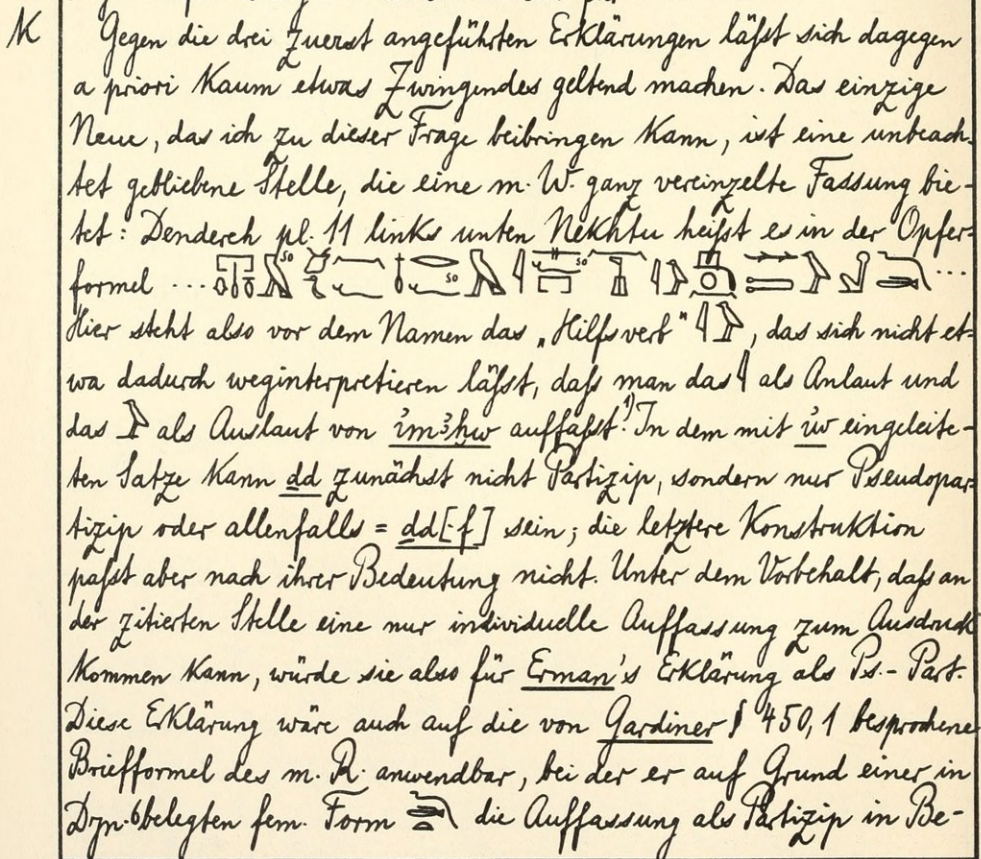 K Gegen die drei zuerst angeführten Erklärungen läßt sich dagegen
a priori kaum etwas Zwingendes geltend machen. Das einzige
Neue, das ich zu dieser Frage beibringen kann, ist eine unbeach-
tet gebliebene Stelle, die eine m. W. ganz vereinzelte Fassung bie-
tet: Dendereh pl. 11 links unten Nekhtu heißt es in der Opfer-
formel ... so so ...
Hier steht also vor dem Namen das „Hilfsverb" 𓇋𓅱, das sich nicht et-
wa dadurch weginterpretieren läßt, daß man das 𓇋 als Anlaut und
das 𓅱 als Auslaut von i҆mꜣḫw auffaßt.1) In dem mit i҆w eingeleite-
ten Satze kann ḏd zunächst nicht Partizip, sondern nur Pseudopar-
tizip oder allenfalls = ḏd[·f] sein; die letztere Konstruktion
paßt aber nach ihrer Bedeutung nicht. Unter dem Vorbehalt, daß an
der zitierten Stelle eine nur individuelle Auffassung zum Ausdruck
kommen kann, würde sie also für Erman's Erklärung als Ps.-Part.
Diese Erklärung wäre auch auf die von Gardiner § 450,1 besprochene
Briefformel des m. R. anwendbar, bei der er auf Grund einer in
Dyn. 6 belegten fem. Form die Auffassung als Partizip in Be-